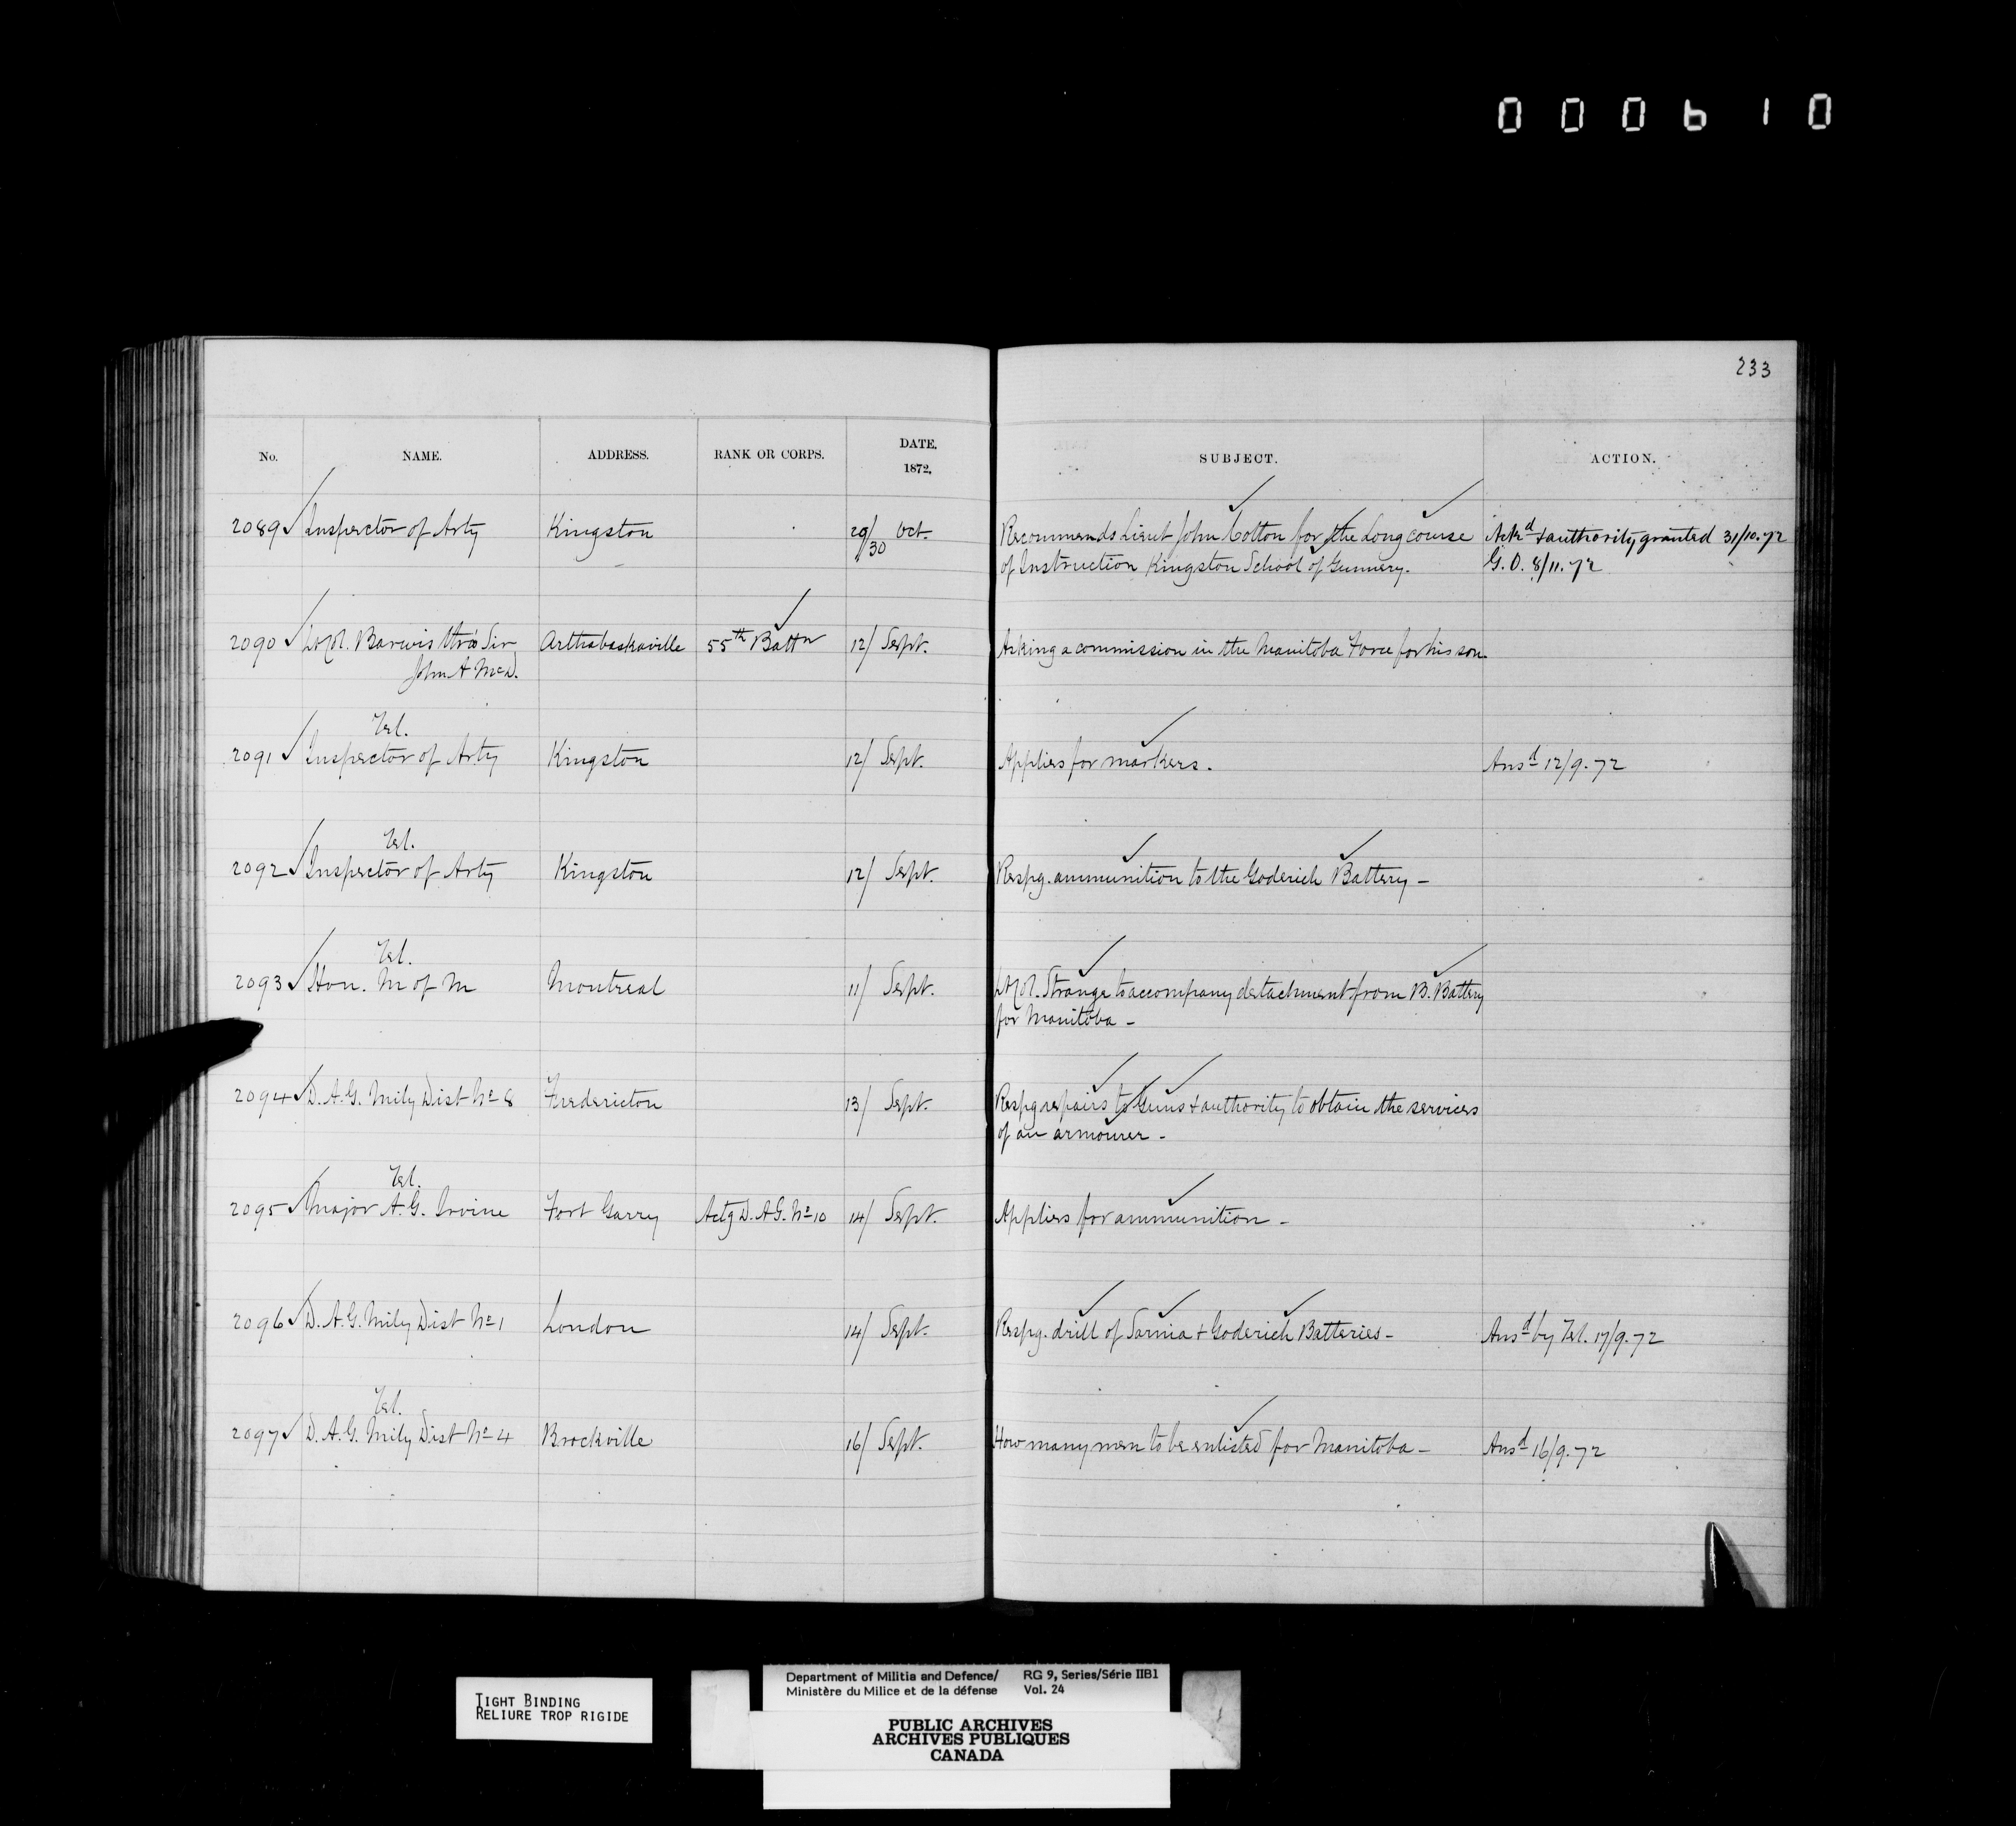 000610
233
No. NAME. ADDRESS. RANK OR CORPS. DATE. 1872. SUBJECT. ACTION.
2089 Inspector of Arty Kingston 29/30 Oct. Recommends Lieut John Cotton for the Long course Ackd & authority granted 31/10.72
of Instruction Kingston School of Gunnery. G.O. 8/11.72
2090 Lt Col. Barwis thro Sir Arthabaskaville 55th Battn 12/ Sept. Asking a commission in the Manitoba Force for his son.
John A McD.
Tel.
2091 Inspector of Arty Kingston 12/ Sept. Applies for markers. Ansd 12/9.72
Tel.
2092 Inspector of Arty Kingston 12/ Sept. Respg. ammunition to the Goderich Battery –
Tel.
2093 Hon. M of M Montreal 11/ Sept. Lt Col. Strange to accompany detachment from B. Battery
for Manitoba –
2094 D.A.G. Mily Dist No 8 Fredericton 13/ Sept. Respg repairs to Guns & authority to obtain the services
of an armourer –
Tel.
2095 Major A.G. Irvine Fort Garry Actg D.A.G. No 10 14/ Sept. Applies for ammunition –
2096 D.A.G. Mily Dist No 1 London 14/ Sept. Respg. drill of Sarnia & Goderich Batteries – Ansd by Tel. 17/9.72
Tel.
2097 D.A.G. Mily Dist No 4 Brockville 16/ Sept. How many men to be enlisted for Manitoba – Ansd 16/9.72
TIGHT BINDING
RELIURE TROP RIGIDE
Department of Militia and Defence/ RG 9, Series/Série IIB1
Ministère du Milice et de la défense Vol. 24
PUBLIC ARCHIVES
ARCHIVES PUBLIQUES
CANADA